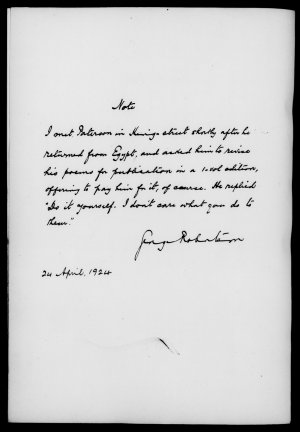 Note
I met Paterson in King's street shortly after he
returned from Egypt, and asked him to revise
his poems for publication in a 1-vol edition,
offering to pay him for it, of course. He replied
"Do it yourself. I don't care what you do to
them."
George Robertson
24 April, 1924